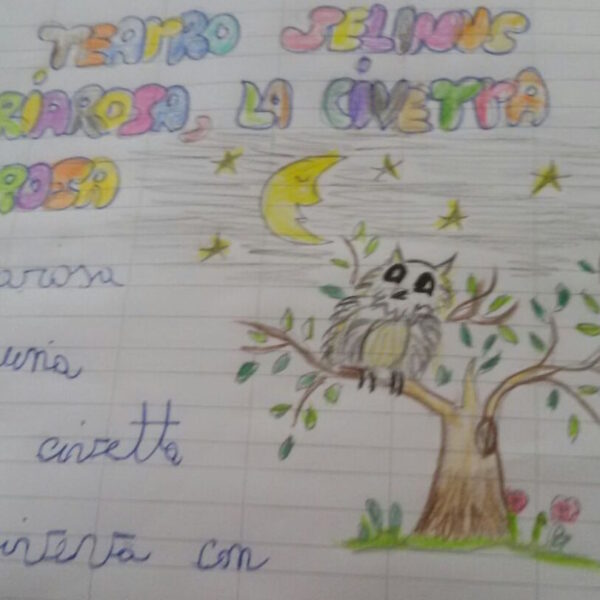 TEATRO SELINUS
RIAROSA, LA CIVETTA
ROSA
arosa
una
civetta
viveva con